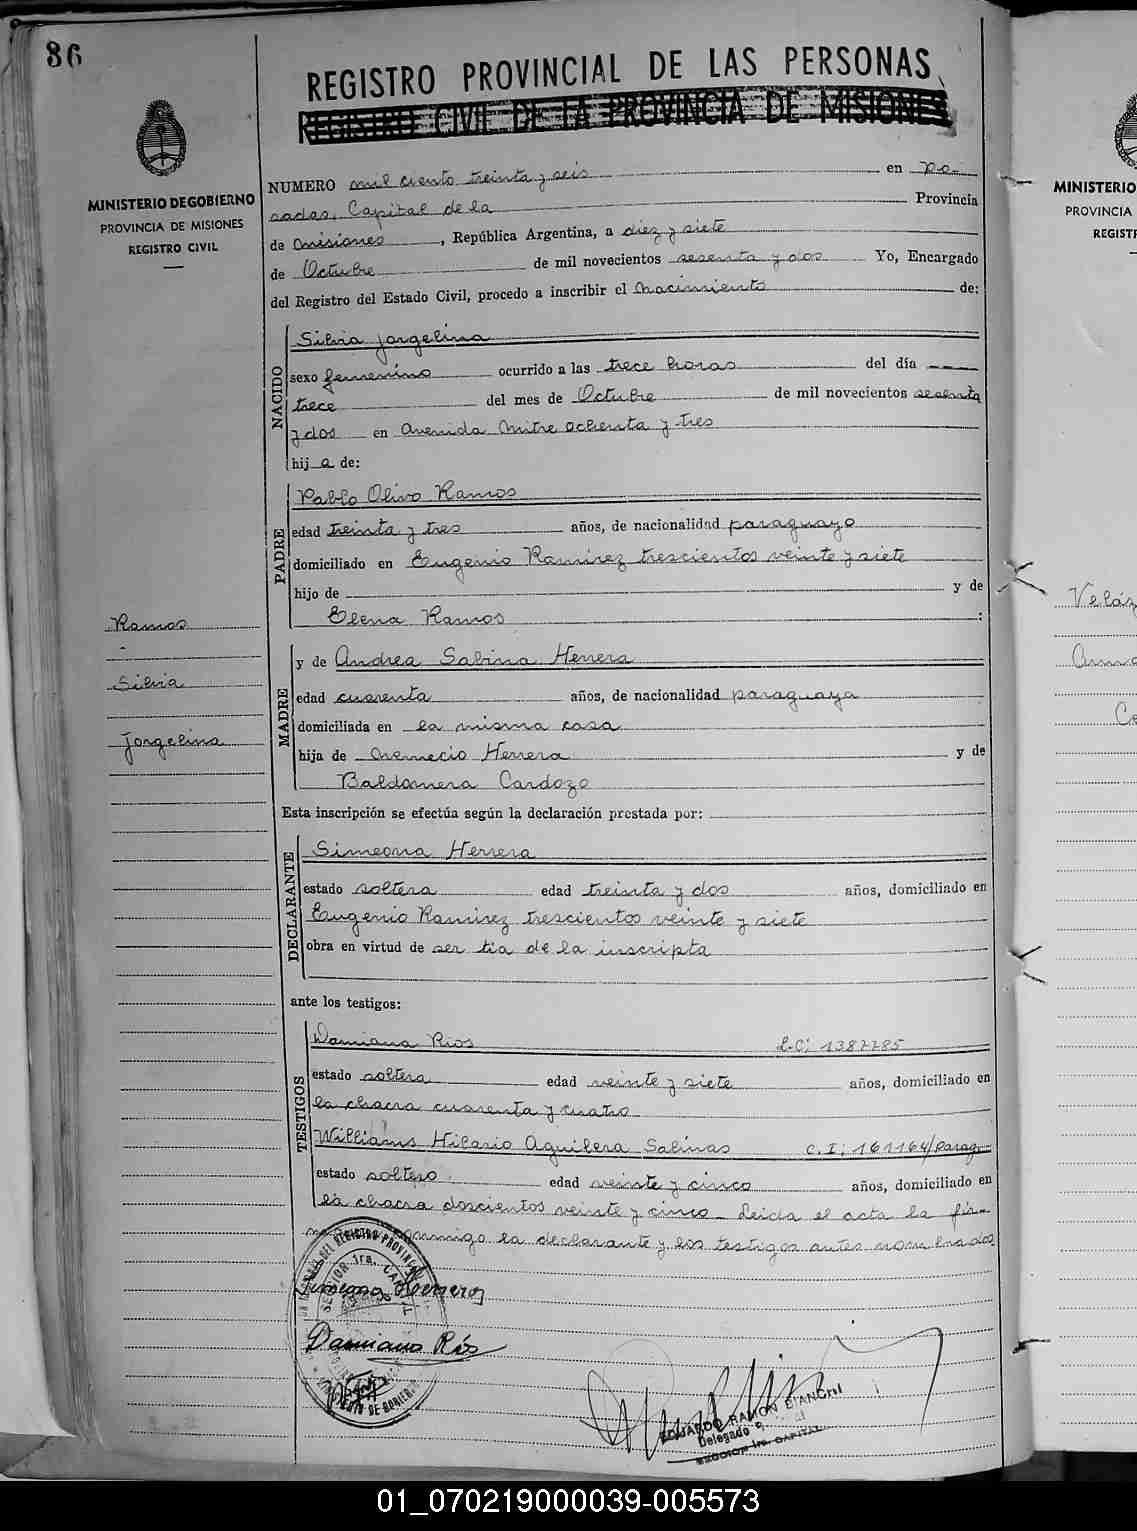 86
REGISTRO PROVINCIAL DE LAS PERSONAS
REGISTRO CIVIL DE LA PROVINCIA DE MISIONES
MINISTERIO DE GOBIERNO
PROVINCIA DE MISIONES
REGISTRO CIVIL
NUMERO mil ciento treinta y seis en Po-
sadas, Capital de la Provincia
de Misiones, República Argentina, a diez y siete
de Octubre de mil novecientos sesenta y dos Yo, Encargado
del Registro del Estado Civil, procedo a inscribir el Nacimiento de:
NACIDO
Silvia Jorgelina
sexo femenino ocurrido a las trece horas del día
trece del mes de Octubre de mil novecientos sesenta
y dos en Avenida Mitre ochenta y tres
hij a de:
PADRE
Pablo Olivo Ramos
edad treinta y tres años, de nacionalidad paraguayo
domiciliado en Eugenio Ramirez trescientos veinte y siete
hijo de y de
Elena Ramos :
Ramos
Silvia
Jorgelina
MADRE
y de Andrea Sabina Herrera
edad cuarenta años, de nacionalidad paraguaya
domiciliada en la misma casa
hija de Nemecio Herrera y de
Baldomera Cardozo
Esta inscripción se efectúa según la declaración prestada por:
DECLARANTE
Simeona Herrera
estado soltera edad treinta y dos años, domiciliado en
Eugenio Ramirez trescientos veinte y siete
obra en virtud de ser tia de la inscripta
ante los testigos:
TESTIGOS
Damiana Rios L.C: 1387785
estado soltera edad veinte y siete años, domiciliado en
la chacra cuarenta y cuatro
Williams Hilario Aguilera Salinas C.I: 161164/parag.
estado soltero edad veinte y cinco años, domiciliado en
la chacra doscientos veinte y cinco_ Leida el acta la fir-
conmigo la declarante y los testigos antes nombrados
Simeona Herrera
Damiana Ríos
EDUARDO RAMON BIANCHI
Delegado
SECCION 1ra. CAPITAL
MINISTERIO
PROVINCIA
REGIST
Veláz
01_070219000039-005573